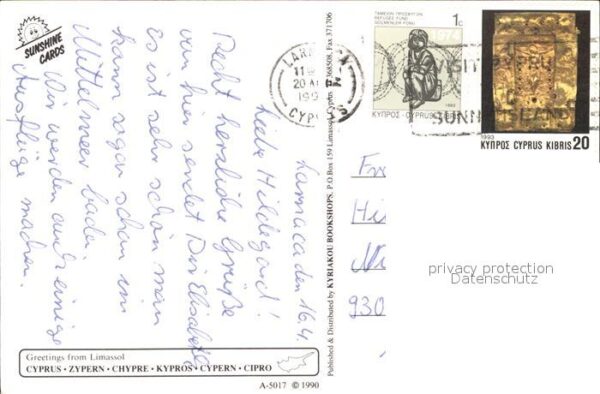 SUNSHINE
CARDS
Larnaca den 16.4.
Liebe Hildegard!
Recht herzliche Grüße
von hier sendet Dir Elisabeth
Es ist sehr schön man
kann sogar schon im
Mittelmeer baden.
Wir werden auch einige
Ausflüge machen.
Greetings from Limassol
CYPRUS · ZYPERN · CHYPRE · KYPROS · CYPERN · CIPRO
A-5017 © 1990
Published & Distributed by KYRIAKOU BOOKSHOPS. P.O.Box 159 Limassol Cyprus 368508, Fax 371706
LARNACA
20
CYPRUS
ΤΑΜΕΙΟΝ ΠΡΟΣΦΥΓΩΝ
REFUGEE FUND
GÖÇMENLER FONU
1c
1974
ΚΥΠΡΟΣ - CYPRUS KIBRIS
VISIT CYPRUS
SUNNY ISLAND
1993
ΚΥΠΡΟΣ CYPRUS KIBRIS 20
Fr
Hi
930
privacy protection
Datenschutz